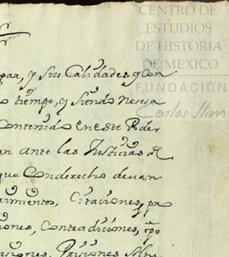 CENTRO DE
ESTUDIOS
DE HISTORIA
DE MEXICO
FUNDACIÓN
Carlos Slim
par, y sus Calidades y Con
o tiempo, y siendo neces
Contenido en este Poder
an ante las Justicias
que Conderecho devan
rimientos, Citaciones, pe
iones, Contradiciones,
Priciones